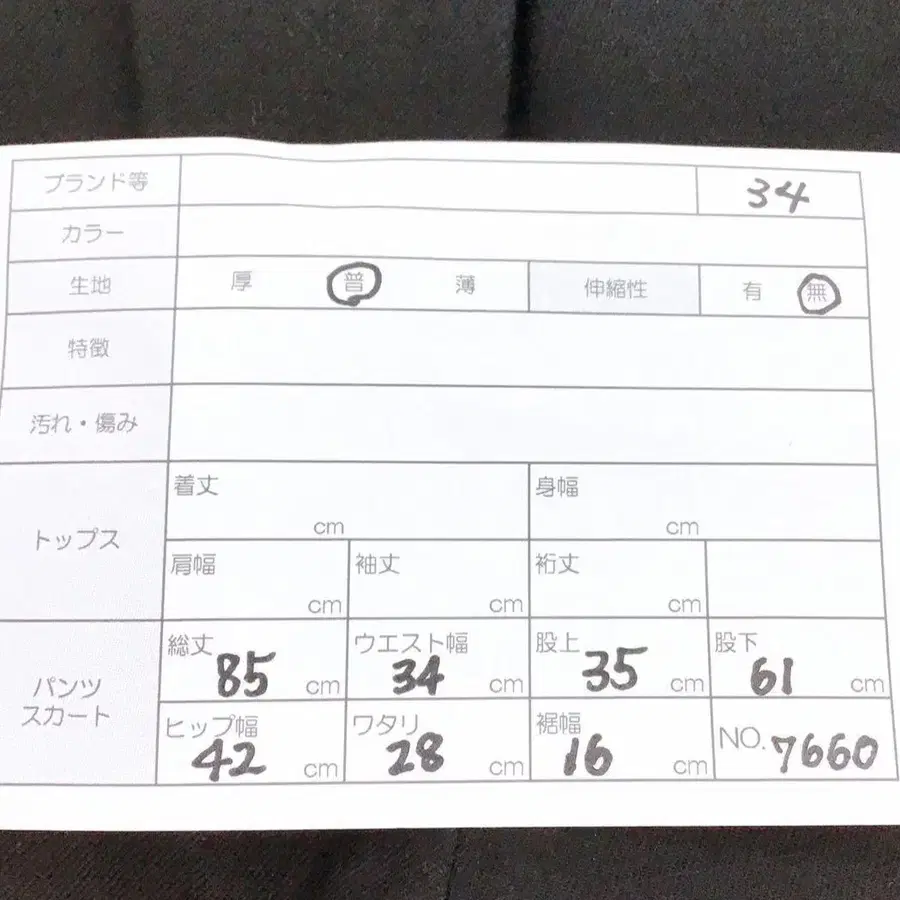 ブランド等 34
カラー
生地 厚 普 薄 伸縮性 有 無
特徴
汚れ・傷み
トップス
着丈 cm 身幅 cm
肩幅 cm 袖丈 cm 裄丈 cm
パンツ
スカート
総丈 85 cm ウエスト幅 34 cm 股上 35 cm 股下 61 cm
ヒップ幅 42 cm ワタリ 28 cm 裾幅 16 cm NO. 7660